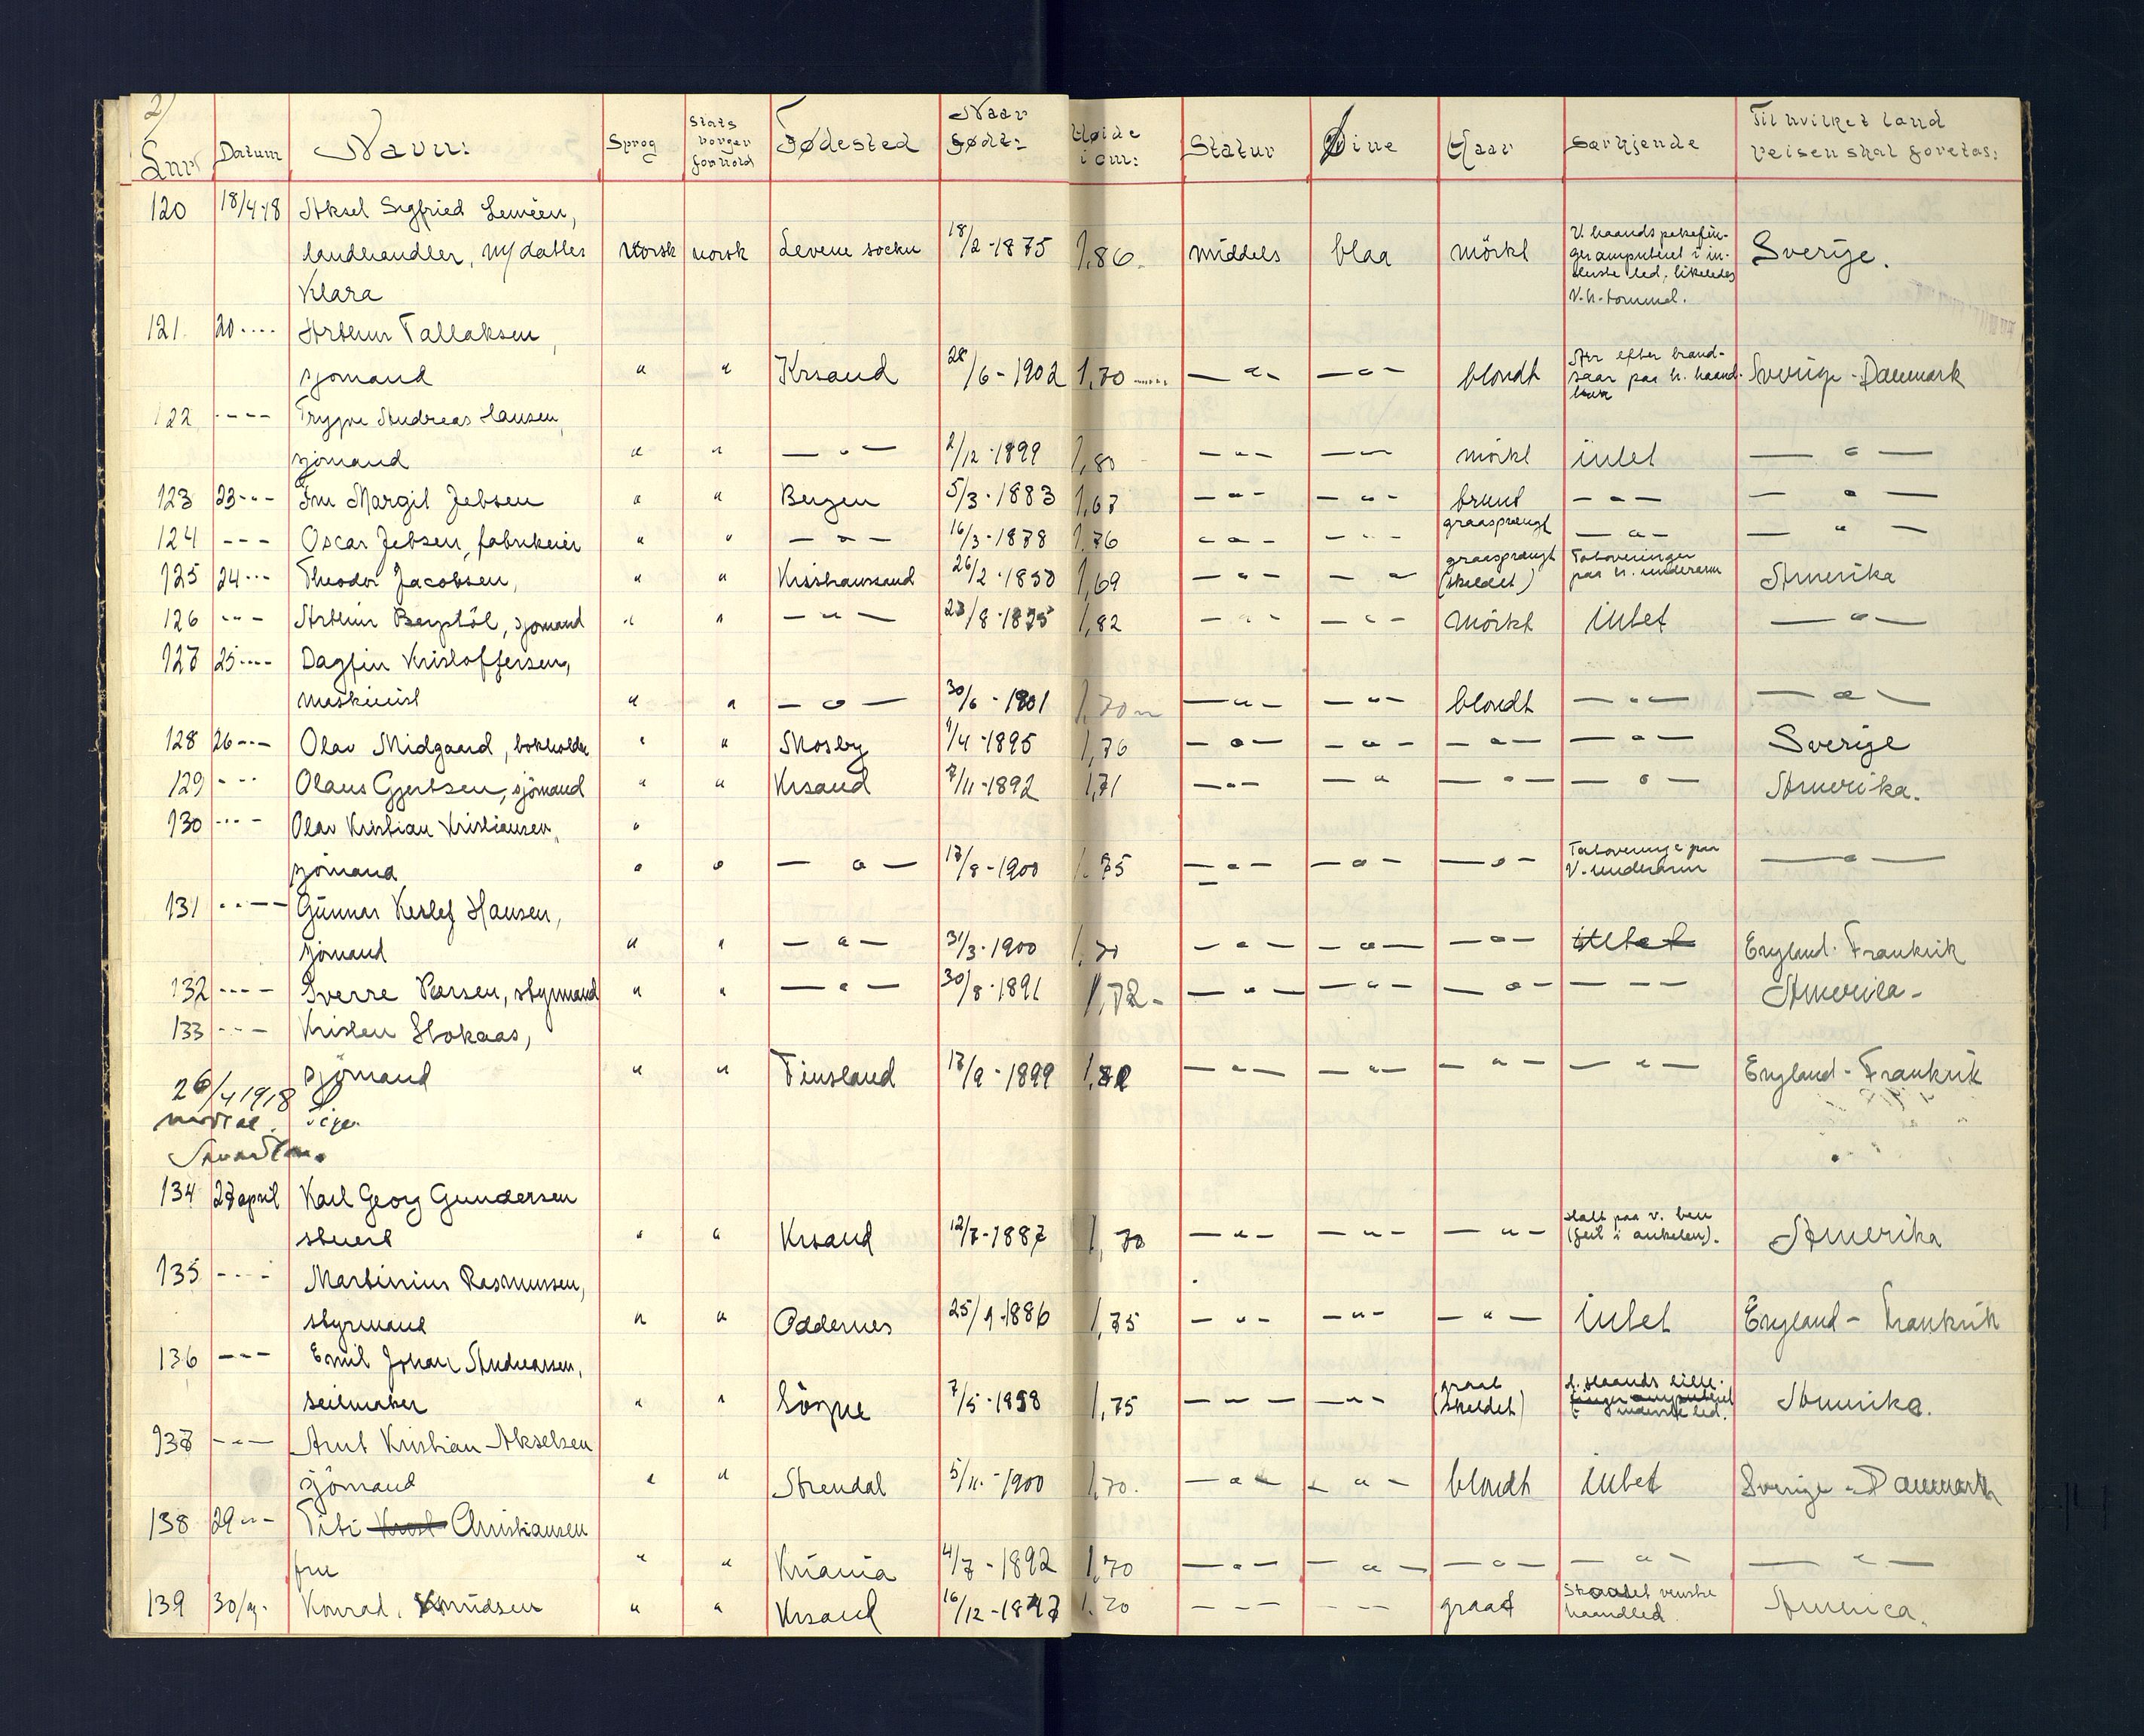 2/
Lnr. Datum Navn: Sprog Statsborgerforhold Fødested Naar født: Høide i cm: Statur Øine Haar Særkjende Til hvilket land reisen skal foretas:
120 18/4-18 Aksel Sigfried
landhandler, m/ datter norsk norsk Levene socku 18/2-1875 1,86. middels blaa mörkt V. haands pekefinger amputeret i inderste led, likeledes V. h. tommel. Sverige.
Klara
121 20 ---- Arthur Tallaksen,
sjömand " " Krsand 28/6-1902 1,70 — " — — " — blondt Arr efter brandsaar paa h. haand Sverige - Danmark
122 ---- Trygve Andreas Hansen,
sjömand " " — " — 2/12-1899 1,80 — " — — " — mörkt intet — " —
123 23 --- Fru Margit Jebsen " " Bergen 5/3-1883 1,67 — " — — " — brunt — " — — " —
124 --- Oscar Jebsen, fabrikeier " " — " — 16/3-1878 1,76 — " — — " — graasprængt — " — — " —
125 24 --- Theodor Jacobsen, " " Kristianssand 26/2-1850 1,69 — " — — " — graasprængt (skaldet) Tatoveringer paa h. underarm Amerika
126 --- Arthur Bergstöl, sjömand " " — " — 23/8-1875 1,82 — " — — " — mörkt intet — " —
127 25 ---- Dagfin Kristoffersen,
maskinist " " — " — 30/6-1901 1,70 — " — — " — blondt — " — — " —
128 26 --- Olav Midgaard, bokholder " " Mosby 9/4-1895 1,76 — " — — " — — " — — " — Sverige
129 --- Olaus Gjertsen, sjömand " " Krsand 7/11-1892 1,71 — " — — " — — " — — " — Amerika.
130 ---- Olav Kristian Kristiansen, "
sjömand " " — " — 17/8-1900 1,75 — " — — " — — " — Tatovering paa V. underarm — " —
131 ---- Gunnar Hansen,
sjömand " " — " — 31/3-1900 1,70 — " — — " — — " — intet England - Frankrik
132 ---- Sverre Larsen, styrmand " " — " — 30/8-1891 1,72 - — " — — " — — " — — — — Amerika -
133 ---- Kristen Stokaas,
sjömand " " Finsland 17/9-1899 1,80 — " — — " — — " — — " — England - Frankrik
26/4 1918

134 27 april Karl Georg Gundersen
stuert " " Krsand 12/7-1887 1,70 — " — — " — — " — Halt paa v. ben (feil i ankelen). Amerika
135 ---- Martinius Rasmussen,
styrmand " " Oddernes 25/9-1886 1,75 — " — — " — — " — intet England - Frankrik
136 --- Emil Johan Andreassen,
seilmaker " " Sögne 7/5-1858 1,75 — — — — " — graat (skaldet) haands lillefinger amputeret i inderste led. Amerika.
137 --- Arnt Kristian Akselsen
sjömand " " Arendal 5/11-1900 1,70. — " — — " — blondt intet Sverige - Danmark
138 29 --- Christiansen
fru " " Kriania 4/7-1892 1,70 — " — — " — — " — — " — — " —
139 30/4. Konrad, Knudsen " " Krsand 16/12-1847 1,70 — — — — — — graat venstre haandled. America.